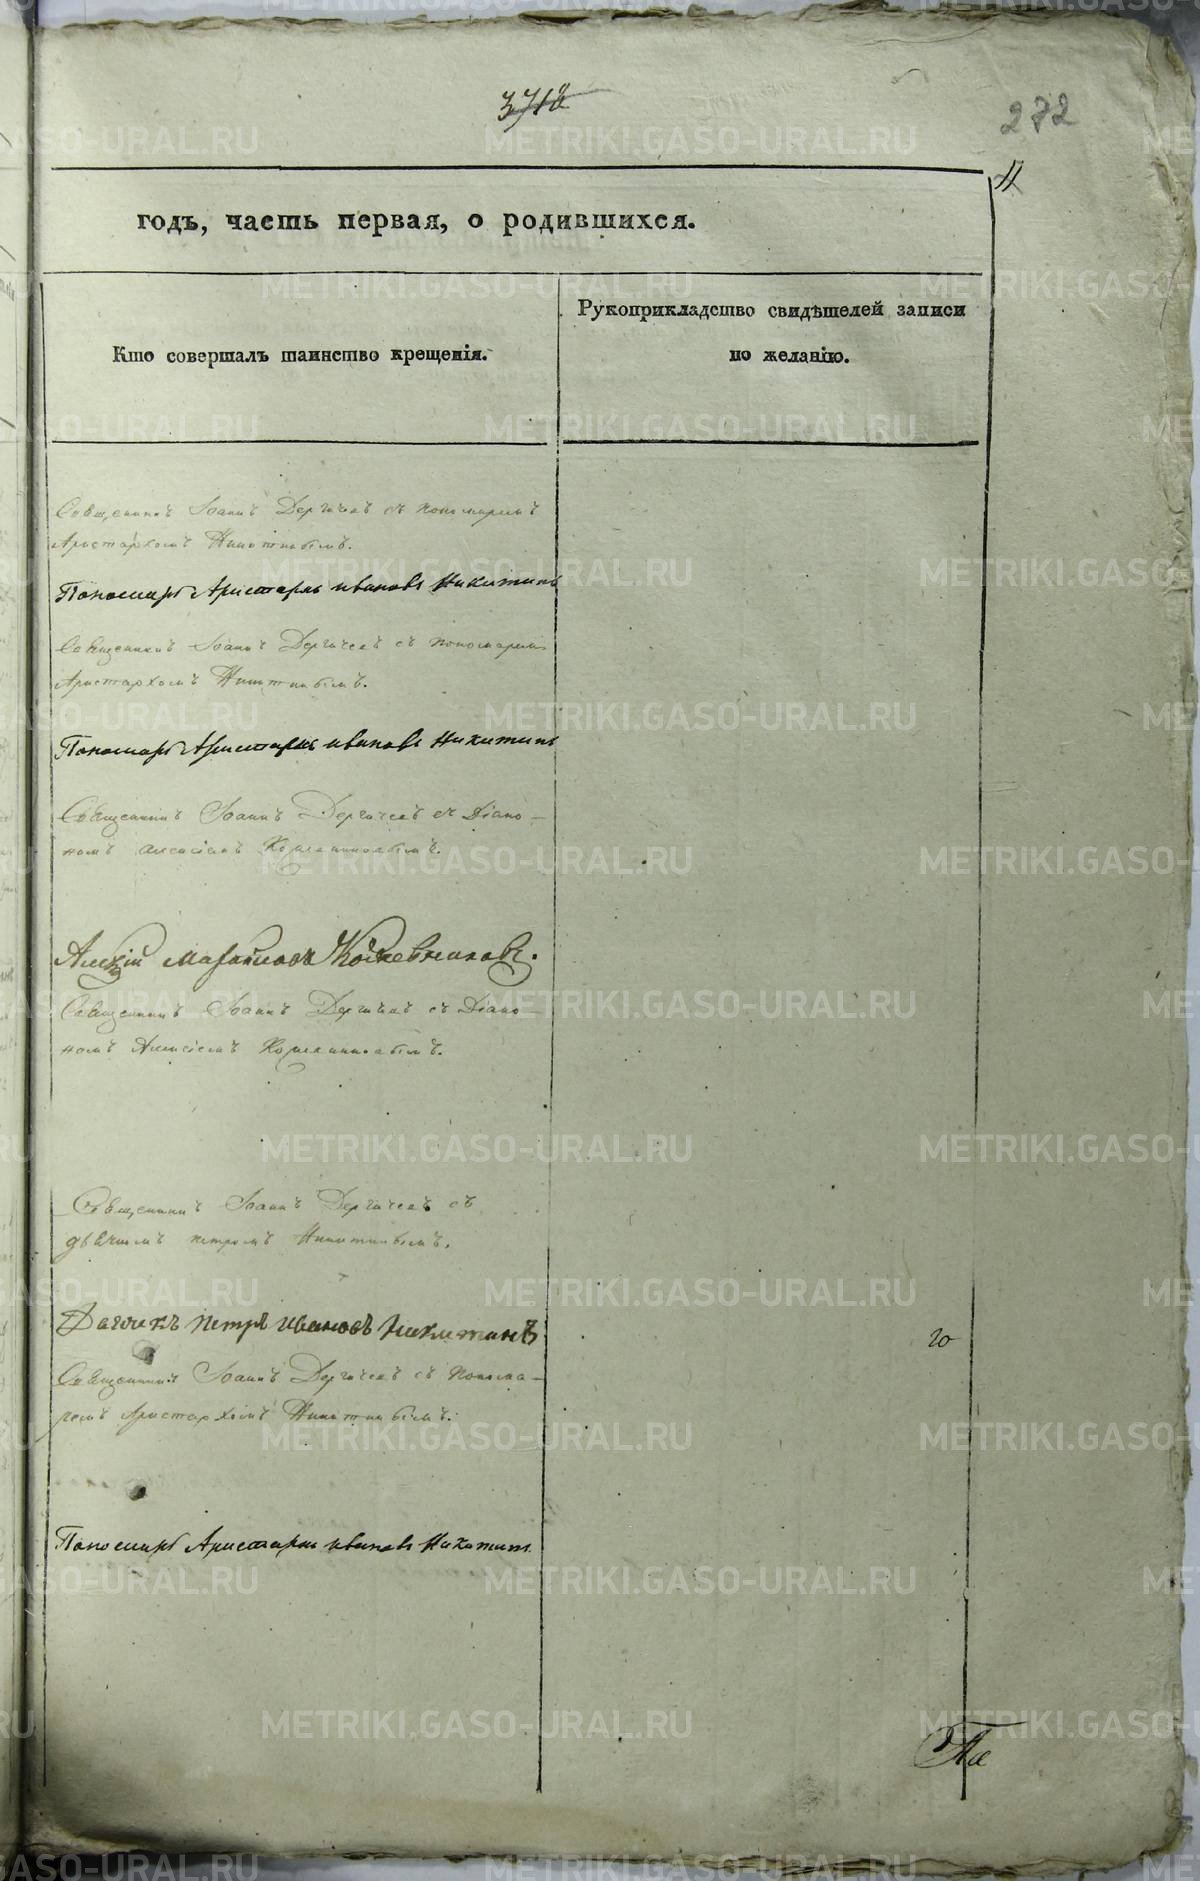 371
272
11
годъ, часть первая, о родившихся.
Кто совершалъ таинство крещенія.
Рукоприкладство свидѣтелей записи
по желанію.
Священникъ Іоаннъ Дергачевъ съ пономаремъ
Аристархомъ Никитинымъ.
Пономарь Аристархъ Ивановъ Никитинъ
Священникъ Іоаннъ Дергачевъ съ пономаремъ
Аристархомъ Никитинымъ.
Пономарь Аристархъ Ивановъ Никитинъ
Священникъ Іоаннъ Дергачевъ съ Діако-
номъ Алексіемъ
Алексій Кожевниковъ.
Священникъ Іоаннъ Дергачевъ съ Діако-
номъ Алексіемъ
Священникъ Іоаннъ Дергачевъ съ
дьячкомъ Петромъ Никитинымъ.
Дьячекъ Петръ Ивановъ Никитинъ
го
Священникъ Іоаннъ Дергачевъ съ Понома-
ремъ Аристархомъ Никитинымъ.
Пономарь Аристархъ Ивановъ Никитинъ
METRIKI.GASO-URAL.RU